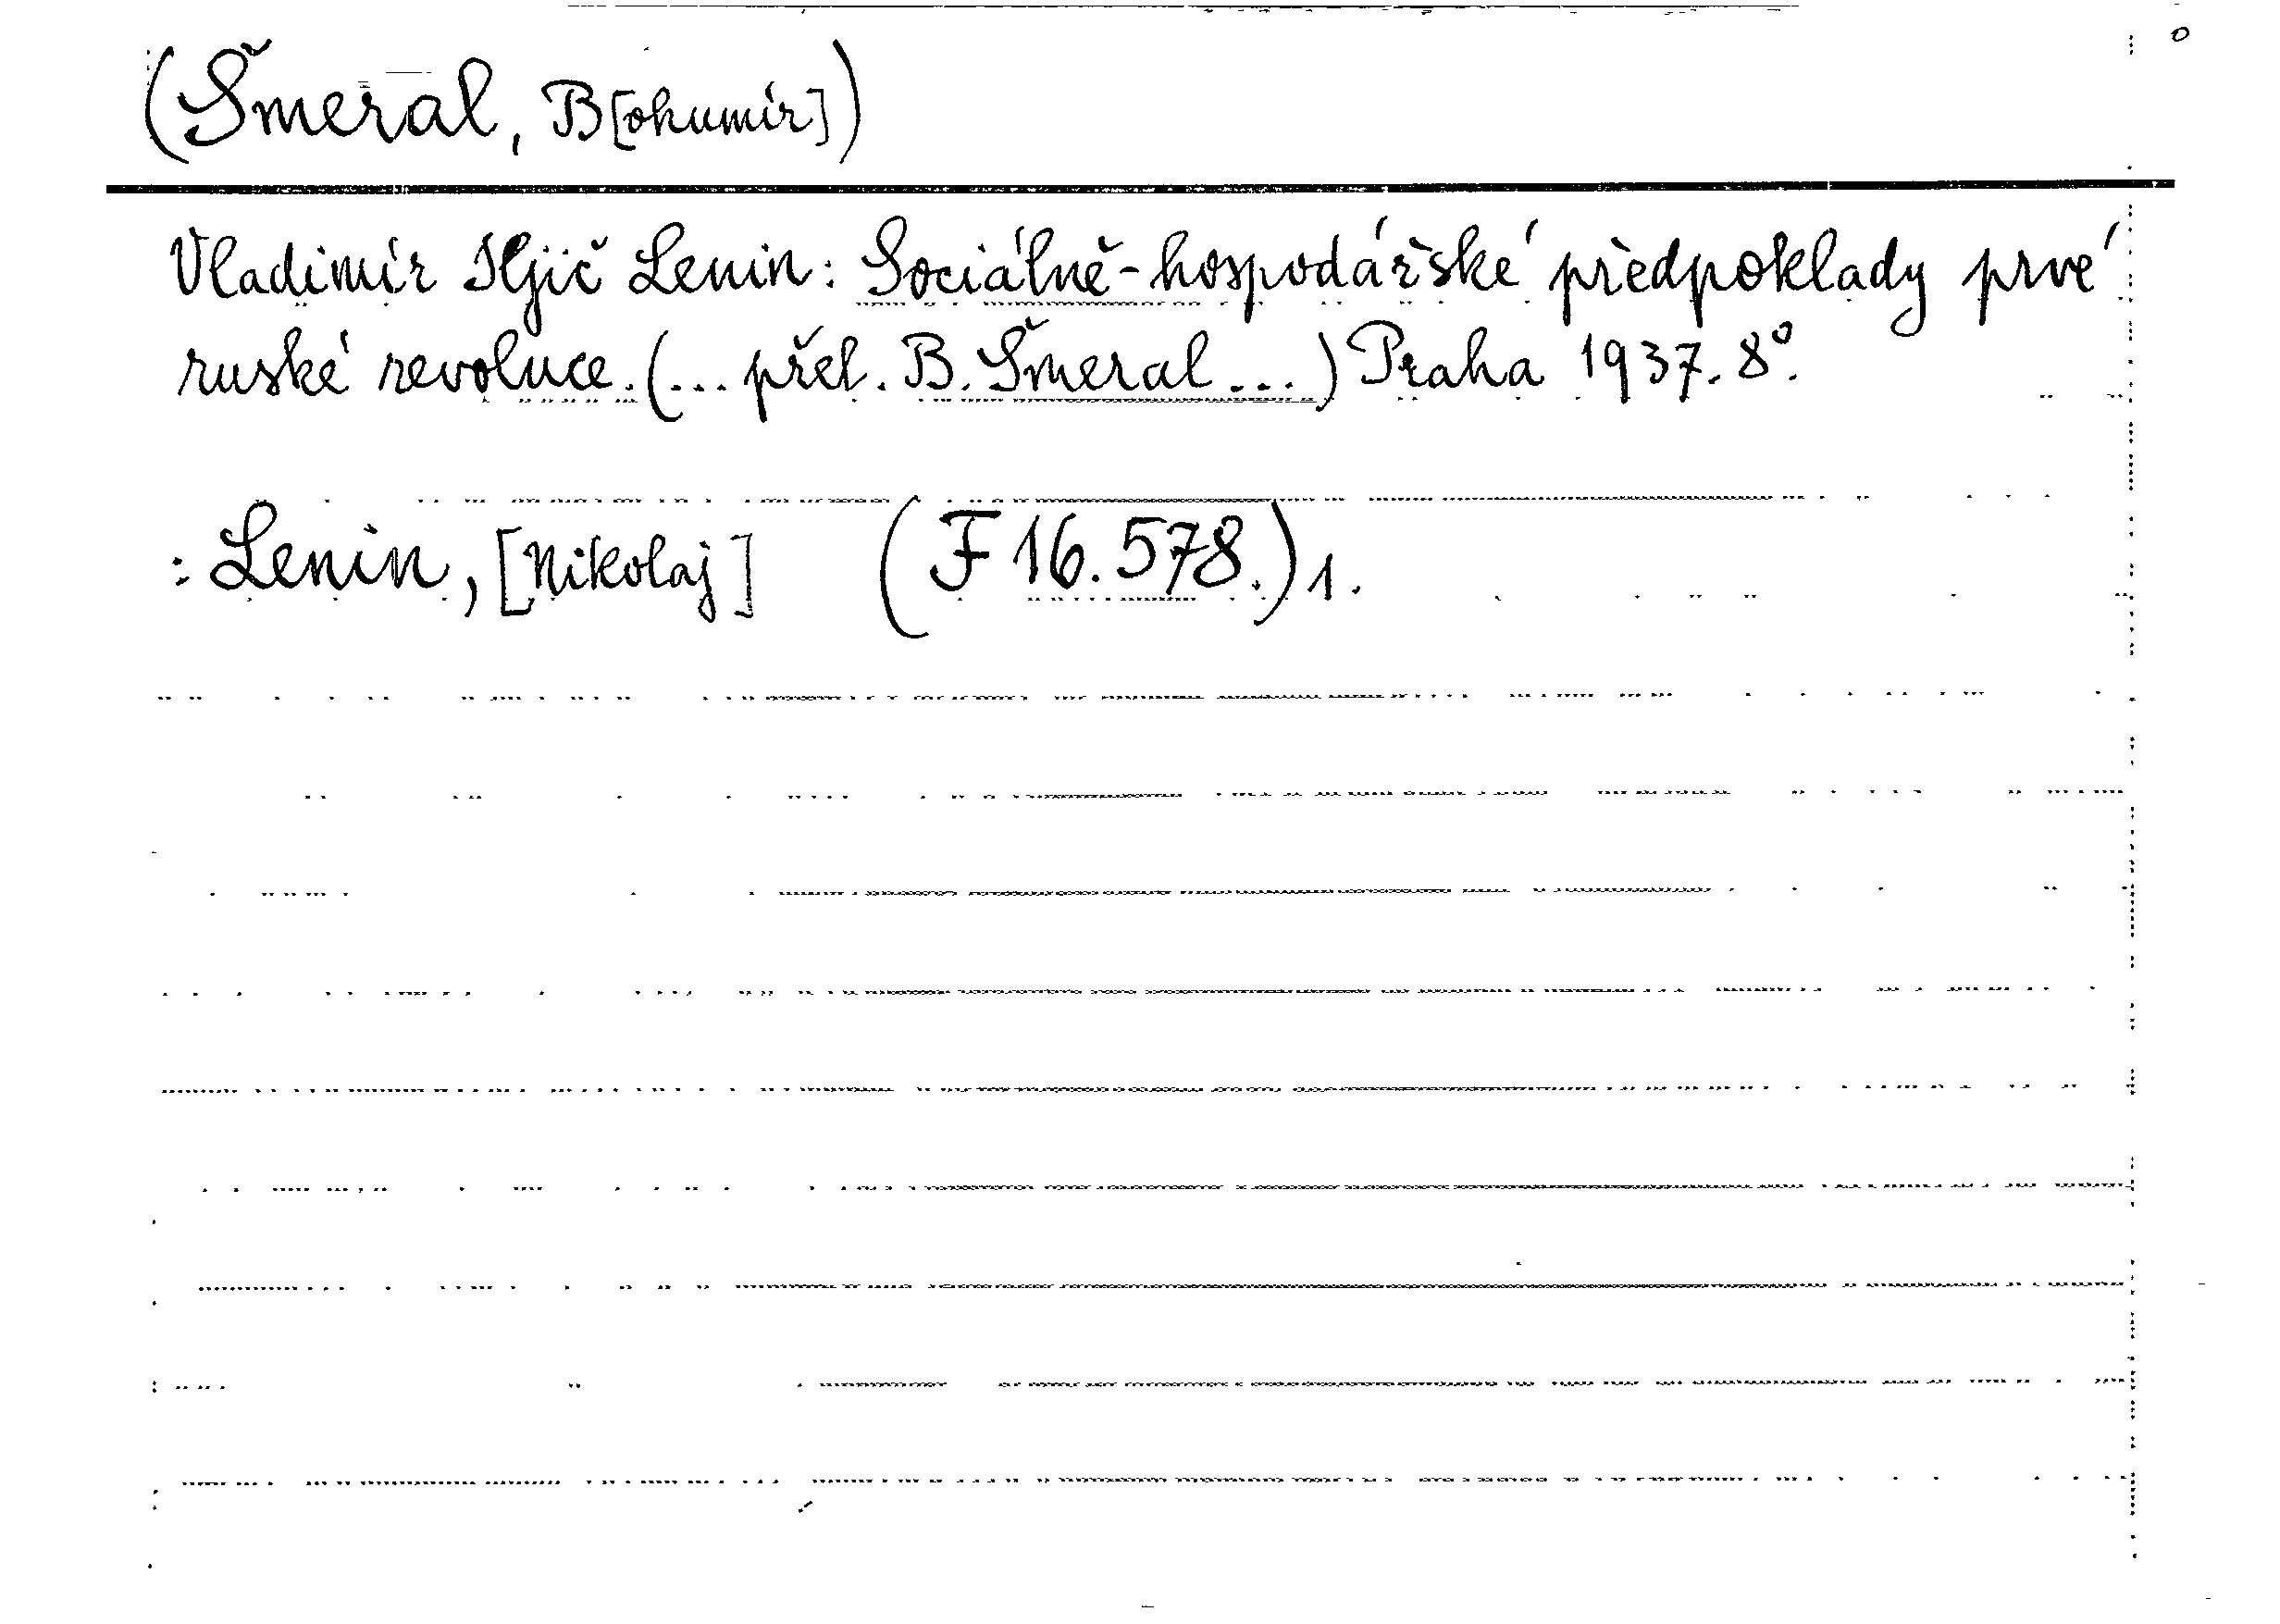 (Šmeral, B[ohumír])
Vladimír Iljič Lenin: Sociálně-hospodářské předpoklady prvé
ruské revoluce. (... přel. B. Šmeral ...) Praha 1937. 8°.
: Lenin, [Nikolaj] (F 16.578.) 1.